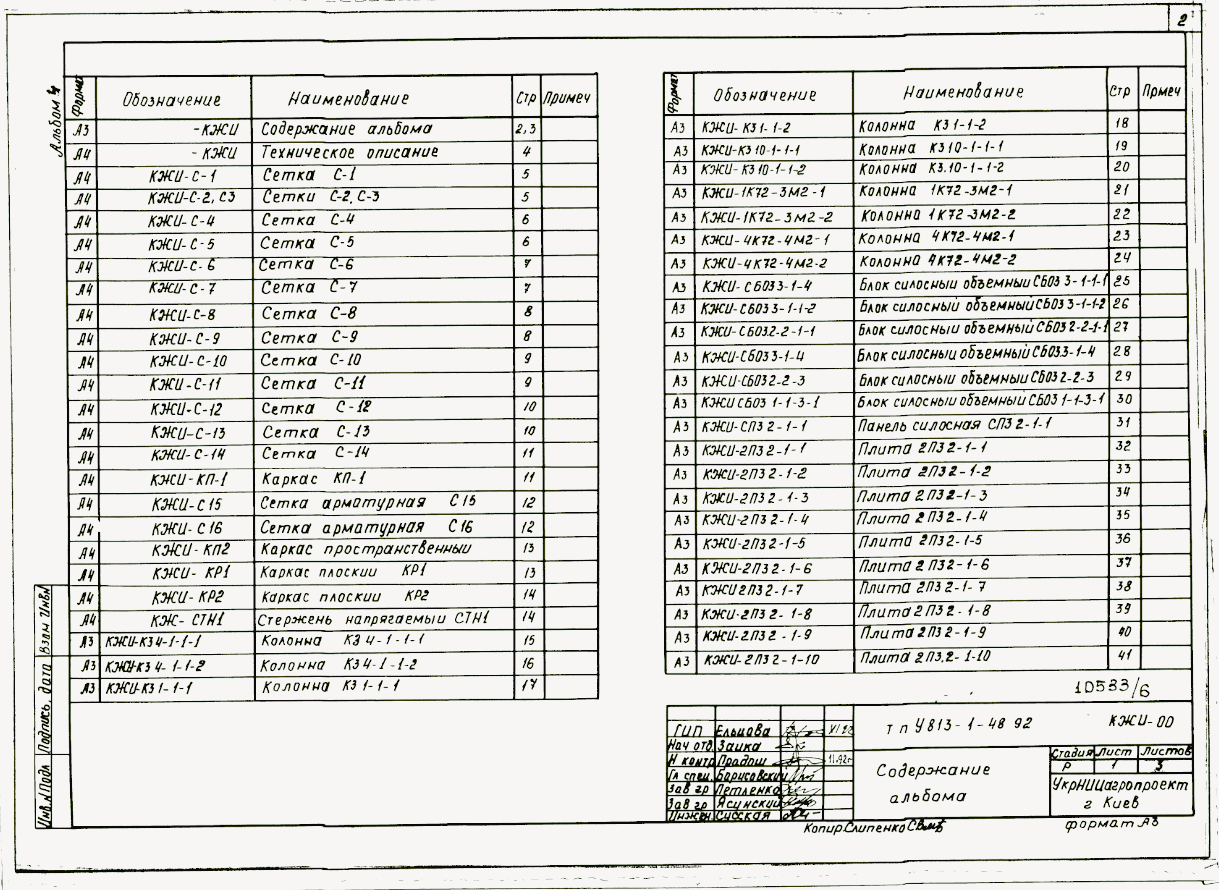 2
Альбом 4
Формат Обозначение Наименование Стр Примеч
А3 -КЖИ Содержание альбома 2,3
А4 -КЖИ Техническое описание 4
А4 КЖИ-С-1 Сетка С-1 5
А4 КЖИ-С-2, С3 Сетки С-2, С-3 5
А4 КЖИ-С-4 Сетка С-4 6
А4 КЖИ-С-5 Сетка С-5 6
А4 КЖИ-С-6 Сетка С-6 7
А4 КЖИ-С-7 Сетка С-7 7
А4 КЖИ-С-8 Сетка С-8 8
А4 КЖИ-С-9 Сетка С-9 8
А4 КЖИ-С-10 Сетка С-10 9
А4 КЖИ-С-11 Сетка С-11 9
А4 КЖИ-С-12 Сетка С-12 10
А4 КЖИ-С-13 Сетка С-13 10
А4 КЖИ-С-14 Сетка С-14 11
А4 КЖИ-КП-1 Каркас КП-1 11
А4 КЖИ-С15 Сетка арматурная С15 12
А4 КЖИ-С16 Сетка арматурная С16 12
А4 КЖИ-КП2 Каркас пространственный 13
А4 КЖИ-КР1 Каркас плоский КР1 13
А4 КЖИ-КР2 Каркас плоский КР2 14
А4 КЖ-СТН1 Стержень напрягаемый СТН1 14
А3 КЖИ-К34-1-1-1 Колонна К34-1-1-1 15
А3 КЖИ-К34-1-1-2 Колонна К34-1-1-2 16
А3 КЖИ-К31-1-1 Колонна К31-1-1 17
Формат Обозначение Наименование Стр Прмеч
А3 КЖИ-К31-1-2 Колонна К31-1-2 18
А3 КЖИ-К310-1-1-1 Колонна К310-1-1-1 19
А3 КЖИ-К310-1-1-2 Колонна К3.10-1-1-2 20
А3 КЖИ-1К72-3М2-1 Колонна 1К72-3М2-1 21
А3 КЖИ-1К72-3М2-2 Колонна 1К72-3М2-2 22
А3 КЖИ-4К72-4М2-1 Колонна 4К72-4М2-1 23
А3 КЖИ-4К72-4М2-2 Колонна 4К72-4М2-2 24
А3 КЖИ-СБ033-1-4 Блок силосный объемный СБ033-1-1-1 25
А3 КЖИ-СБ033-1-1-2 Блок силосный объемный СБ033-1-1-2 26
А3 КЖИ-СБ032-2-1-1 Блок силосный объемный СБ032-2-1-1 27
А3 КЖИ-СБ033-1-4 Блок силосный объемный СБ03.3-1-4 28
А3 КЖИ-СБ032-2-3 Блок силосный объемный СБ032-2-3 29
А3 КЖИ СБ03 1-1-3-1 Блок силосный объемный СБ03 1-1-3-1 30
А3 КЖИ-СП32-1-1 Панель силосная СП32-1-1 31
А3 КЖИ-2П32-1-1 Плита 2П32-1-1 32
А3 КЖИ-2П32-1-2 Плита 2П32-1-2 33
А3 КЖИ-2П32-1-3 Плита 2П32-1-3 34
А3 КЖИ-2П32-1-4 Плита 2П32-1-4 35
А3 КЖИ-2П32-1-5 Плита 2П32-1-5 36
А3 КЖИ-2П32-1-6 Плита 2П32-1-6 37
А3 КЖИ 2П32-1-7 Плита 2П32-1-7 38
А3 КЖИ-2П32-1-8 Плита 2П32-1-8 39
А3 КЖИ-2П32-1-9 Плита 2П32-1-9 40
А3 КЖИ-2П32-1-10 Плита 2П3.2-1-10 41
10583/6
ГИП Ельцова
Нач отд. Заика
Н контр Продош 11.92г
Гл спец. Борисовский
Зав гр Петленко
Зав гр Ясинский
Инжен. Сусская
т п У813-1-48 92 КЖИ-00
Содержание
альбома
Стадия Лист Листов
Р 1 3
УкрНИИагропроект
г Киев
Копир. Слипенко
формат А3
Инв.№ Подл Подпись, дата Взам Инв№